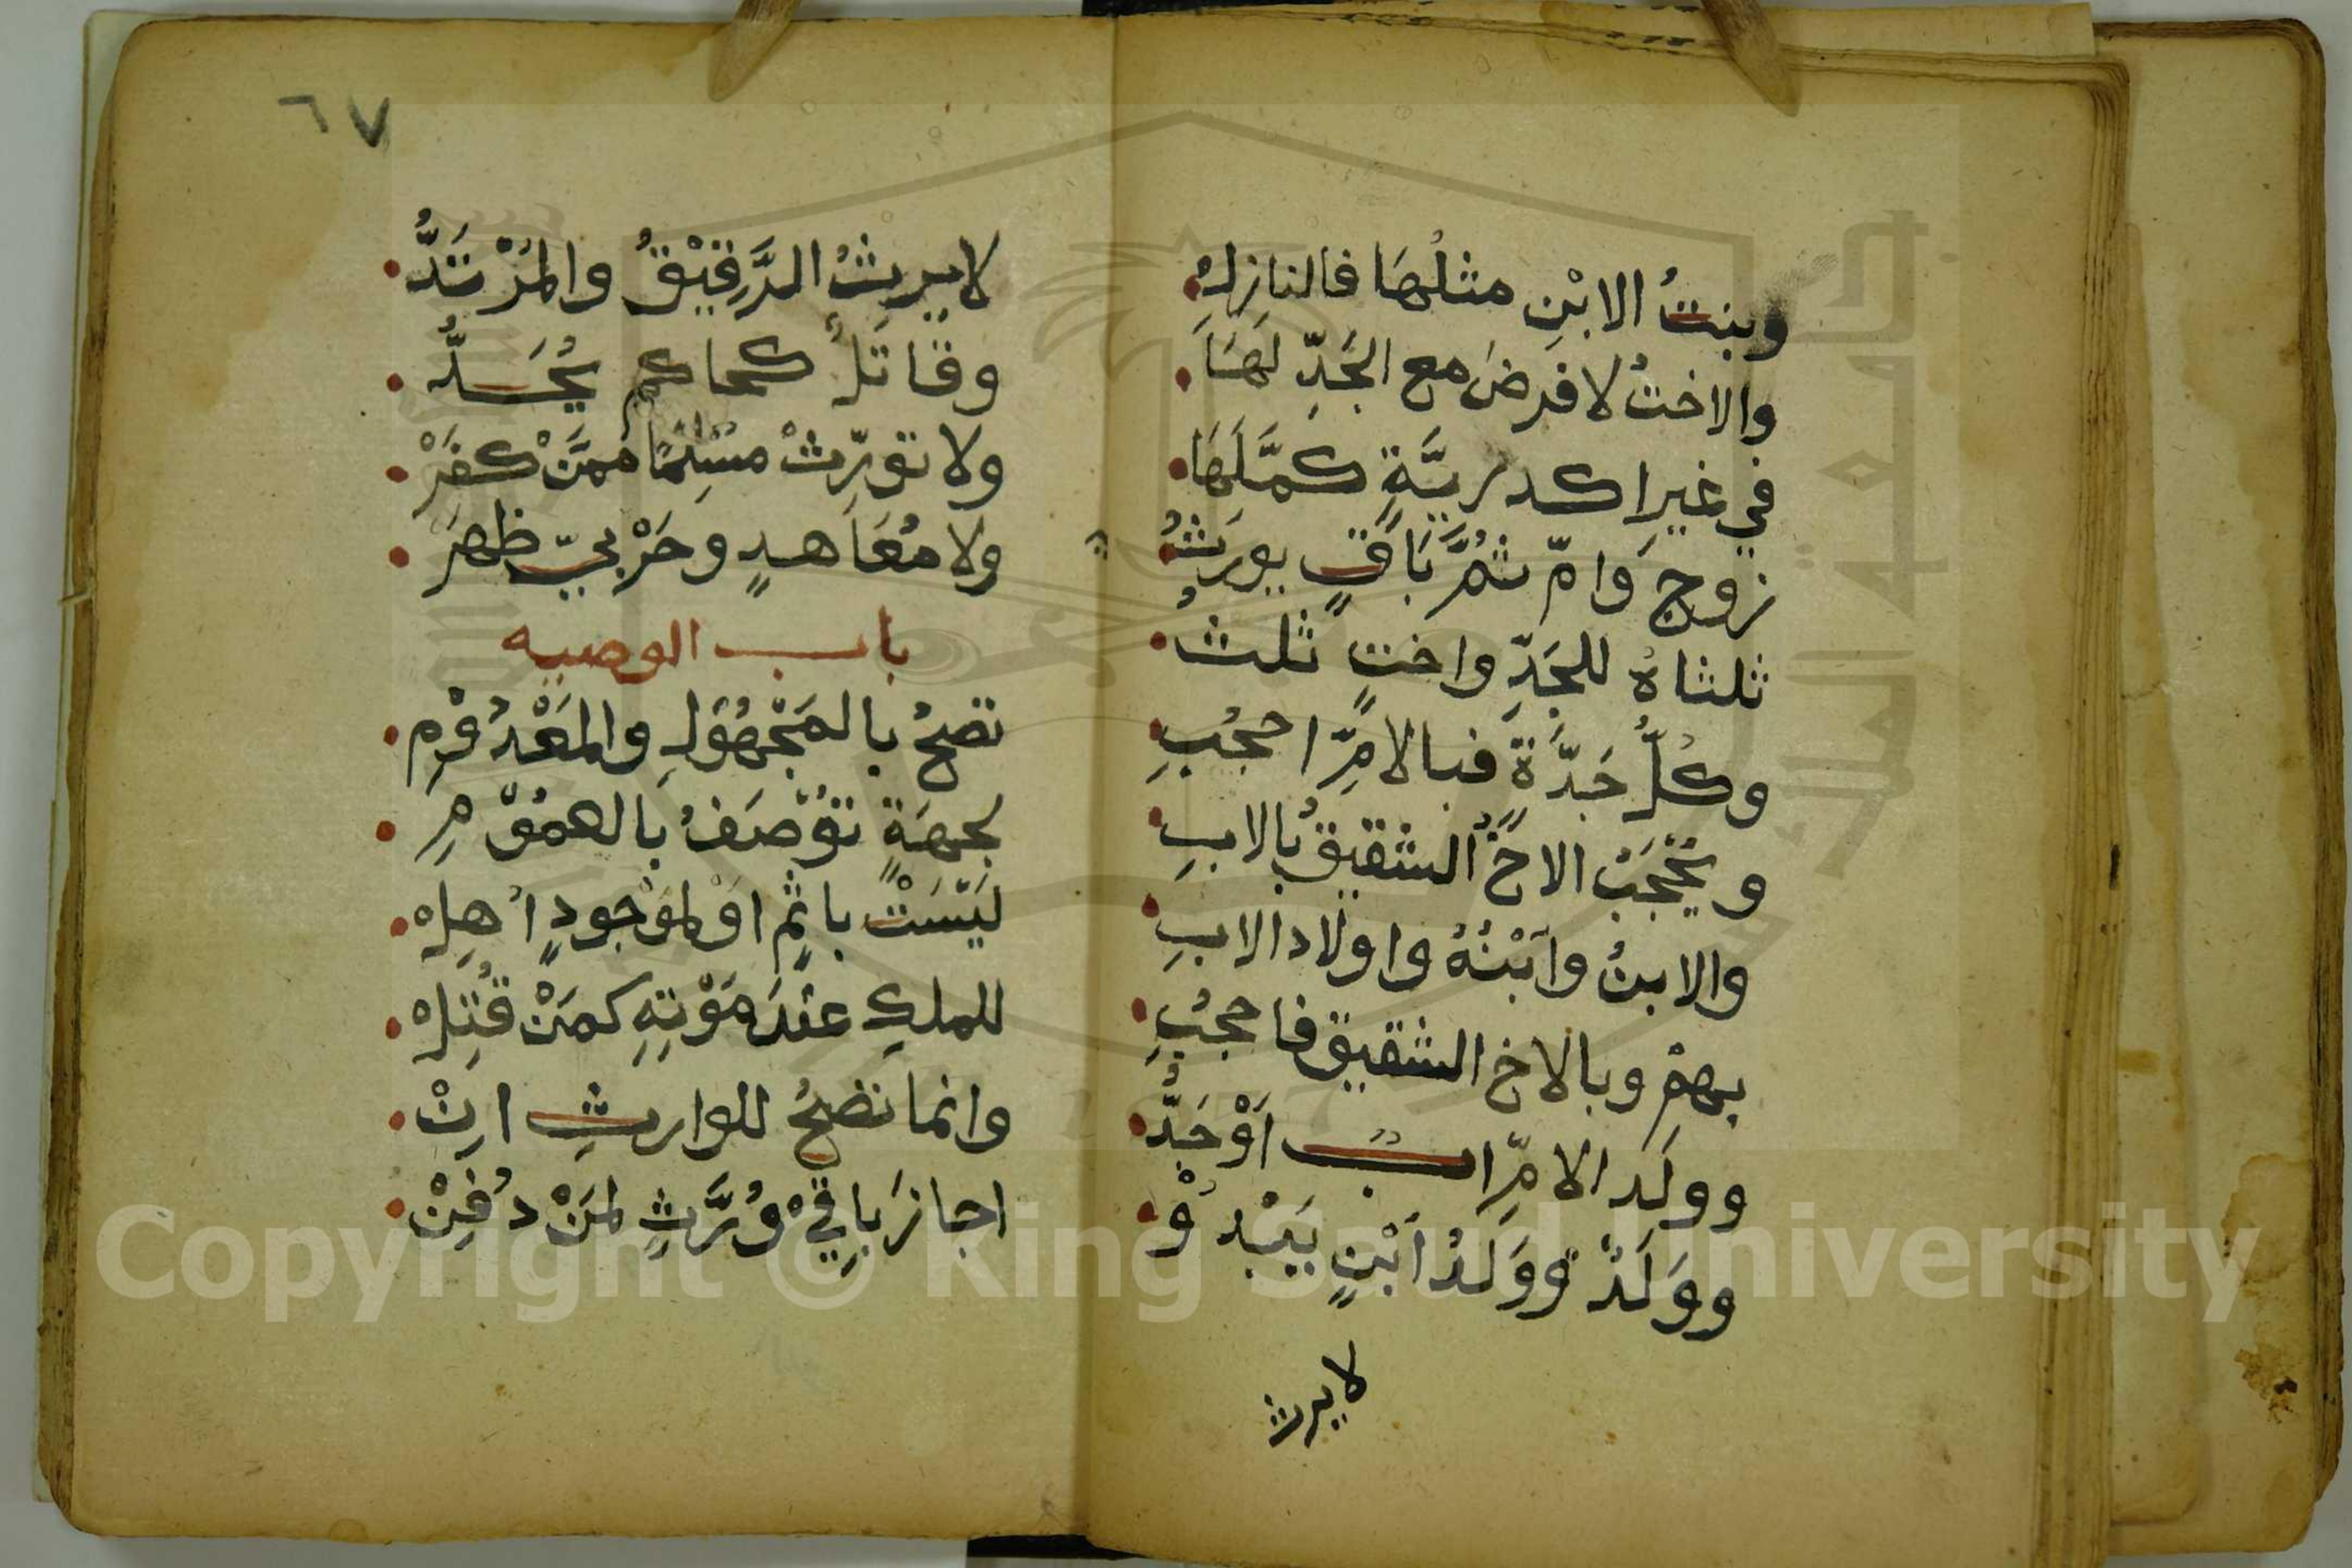 وبنتُ الابْنِ مثلُهَا فالنازِلهْ
والاختُ لا فرضَ مع الجَدِّ لَهَا
في غيرِ اكدريَّةٍ كمَّلَهَا
زوج وَامّ ثمَّ بَاقٍ يورَثُ
ثلثاهُ للجَدِّ واختٍ ثلثُ
وكلُّ جَدَّةٍ فبالامِّ احجُبِ
ويُحْجَبُ الاخُ الشقيقُ بالابِ
والابنُ وابْنُهُ واولاد الابِ
بهِمْ وبالاخ الشقيق فاحجُبِ
وولَد الامِّ ابٌ اَوْ جَدُّ
ووَلَدٌ ووَلَدُ ابْنٍ يَبْدُوْ
لا يرث
٦٧
لا يرِثُ الرَّقِيْقُ والمُرْتَدُّ
وقاتَلٌ كحاكم يُحَدُّ
ولا تورِّثْ مسْلِمًا ممَّنْ كفَرْ
ولا مُعَاهدٍ وحَرْبيّ ظهرَ
باب الوصيه
تصحُ بالمَجْهُوْلِ والمَعْدُوْمِ
لجهَةٍ تُوْصَفُ بالعمُوْمِ
ليْسَتْ باثمٍ اوْ لموْجودٍ اُهِلْ
للملكِ عنْدَ مَوْتِهِ كمَنْ قُتِلْ
وانما تصحُ للوارثِ انْ
اجازَ باقِيْ وُرَّثٍ لمَنْ دُفِنْ
Copyright © King Saud University